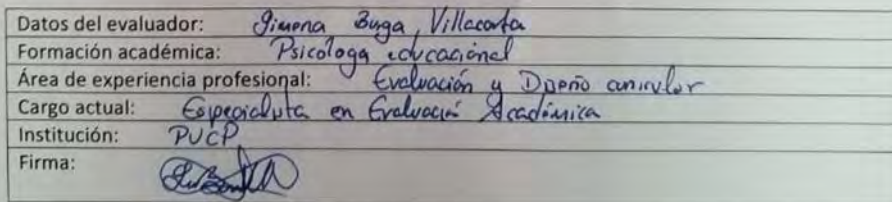 Datos del evaluador: Gimena Burga Villacorta
Formación académica: Psicóloga educacional
Área de experiencia profesional: Evaluación y Diseño curricular
Cargo actual: Especialista en Evaluación Académica
Institución: PUCP
Firma: